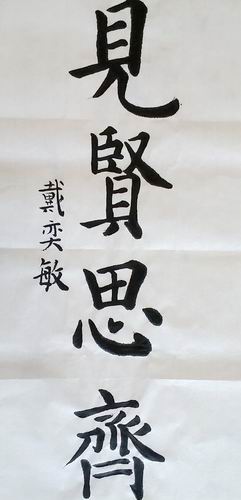 見賢思齊
戴奕敏